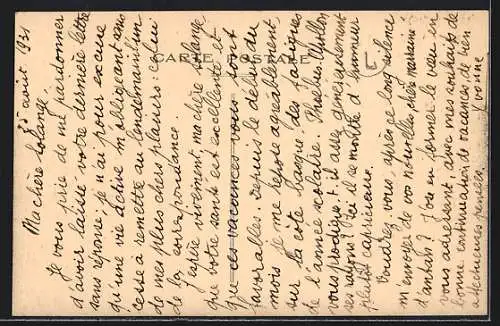 CARTE POSTALE
août 1931
Ma chère Solange,
Je vous prie de me pardonner
d'avoir laissé votre dernière lettre
sans réponse; je n'ai pour excuse
qu'une vie active m'obligeant sans
cesse à remettre au lendemain un
de mes plus chers plaisirs: celui
de la correspondance.
J'espère vivement, ma chère Solange
que votre santé est excellente et
que ces vacances vous sont
favorables. Depuis le début du
mois je me repose agréablement
sur la côte basque, des fatigues
de l'année scolaire. Phoebus-Apollon
vous prodigue-t-il assez généreusement
ses rayons? Ici il se montre d'humeur
plutôt capricieuse.
Voudrez-vous, après ce long silence
m'envoyer de vos nouvelles, chère marraine
d'antan? J'ose en former le vœu en
vous adressant, avec mes souhaits de
bonne continuation de vacances, de bien
affectueuses pensées. Yvonne